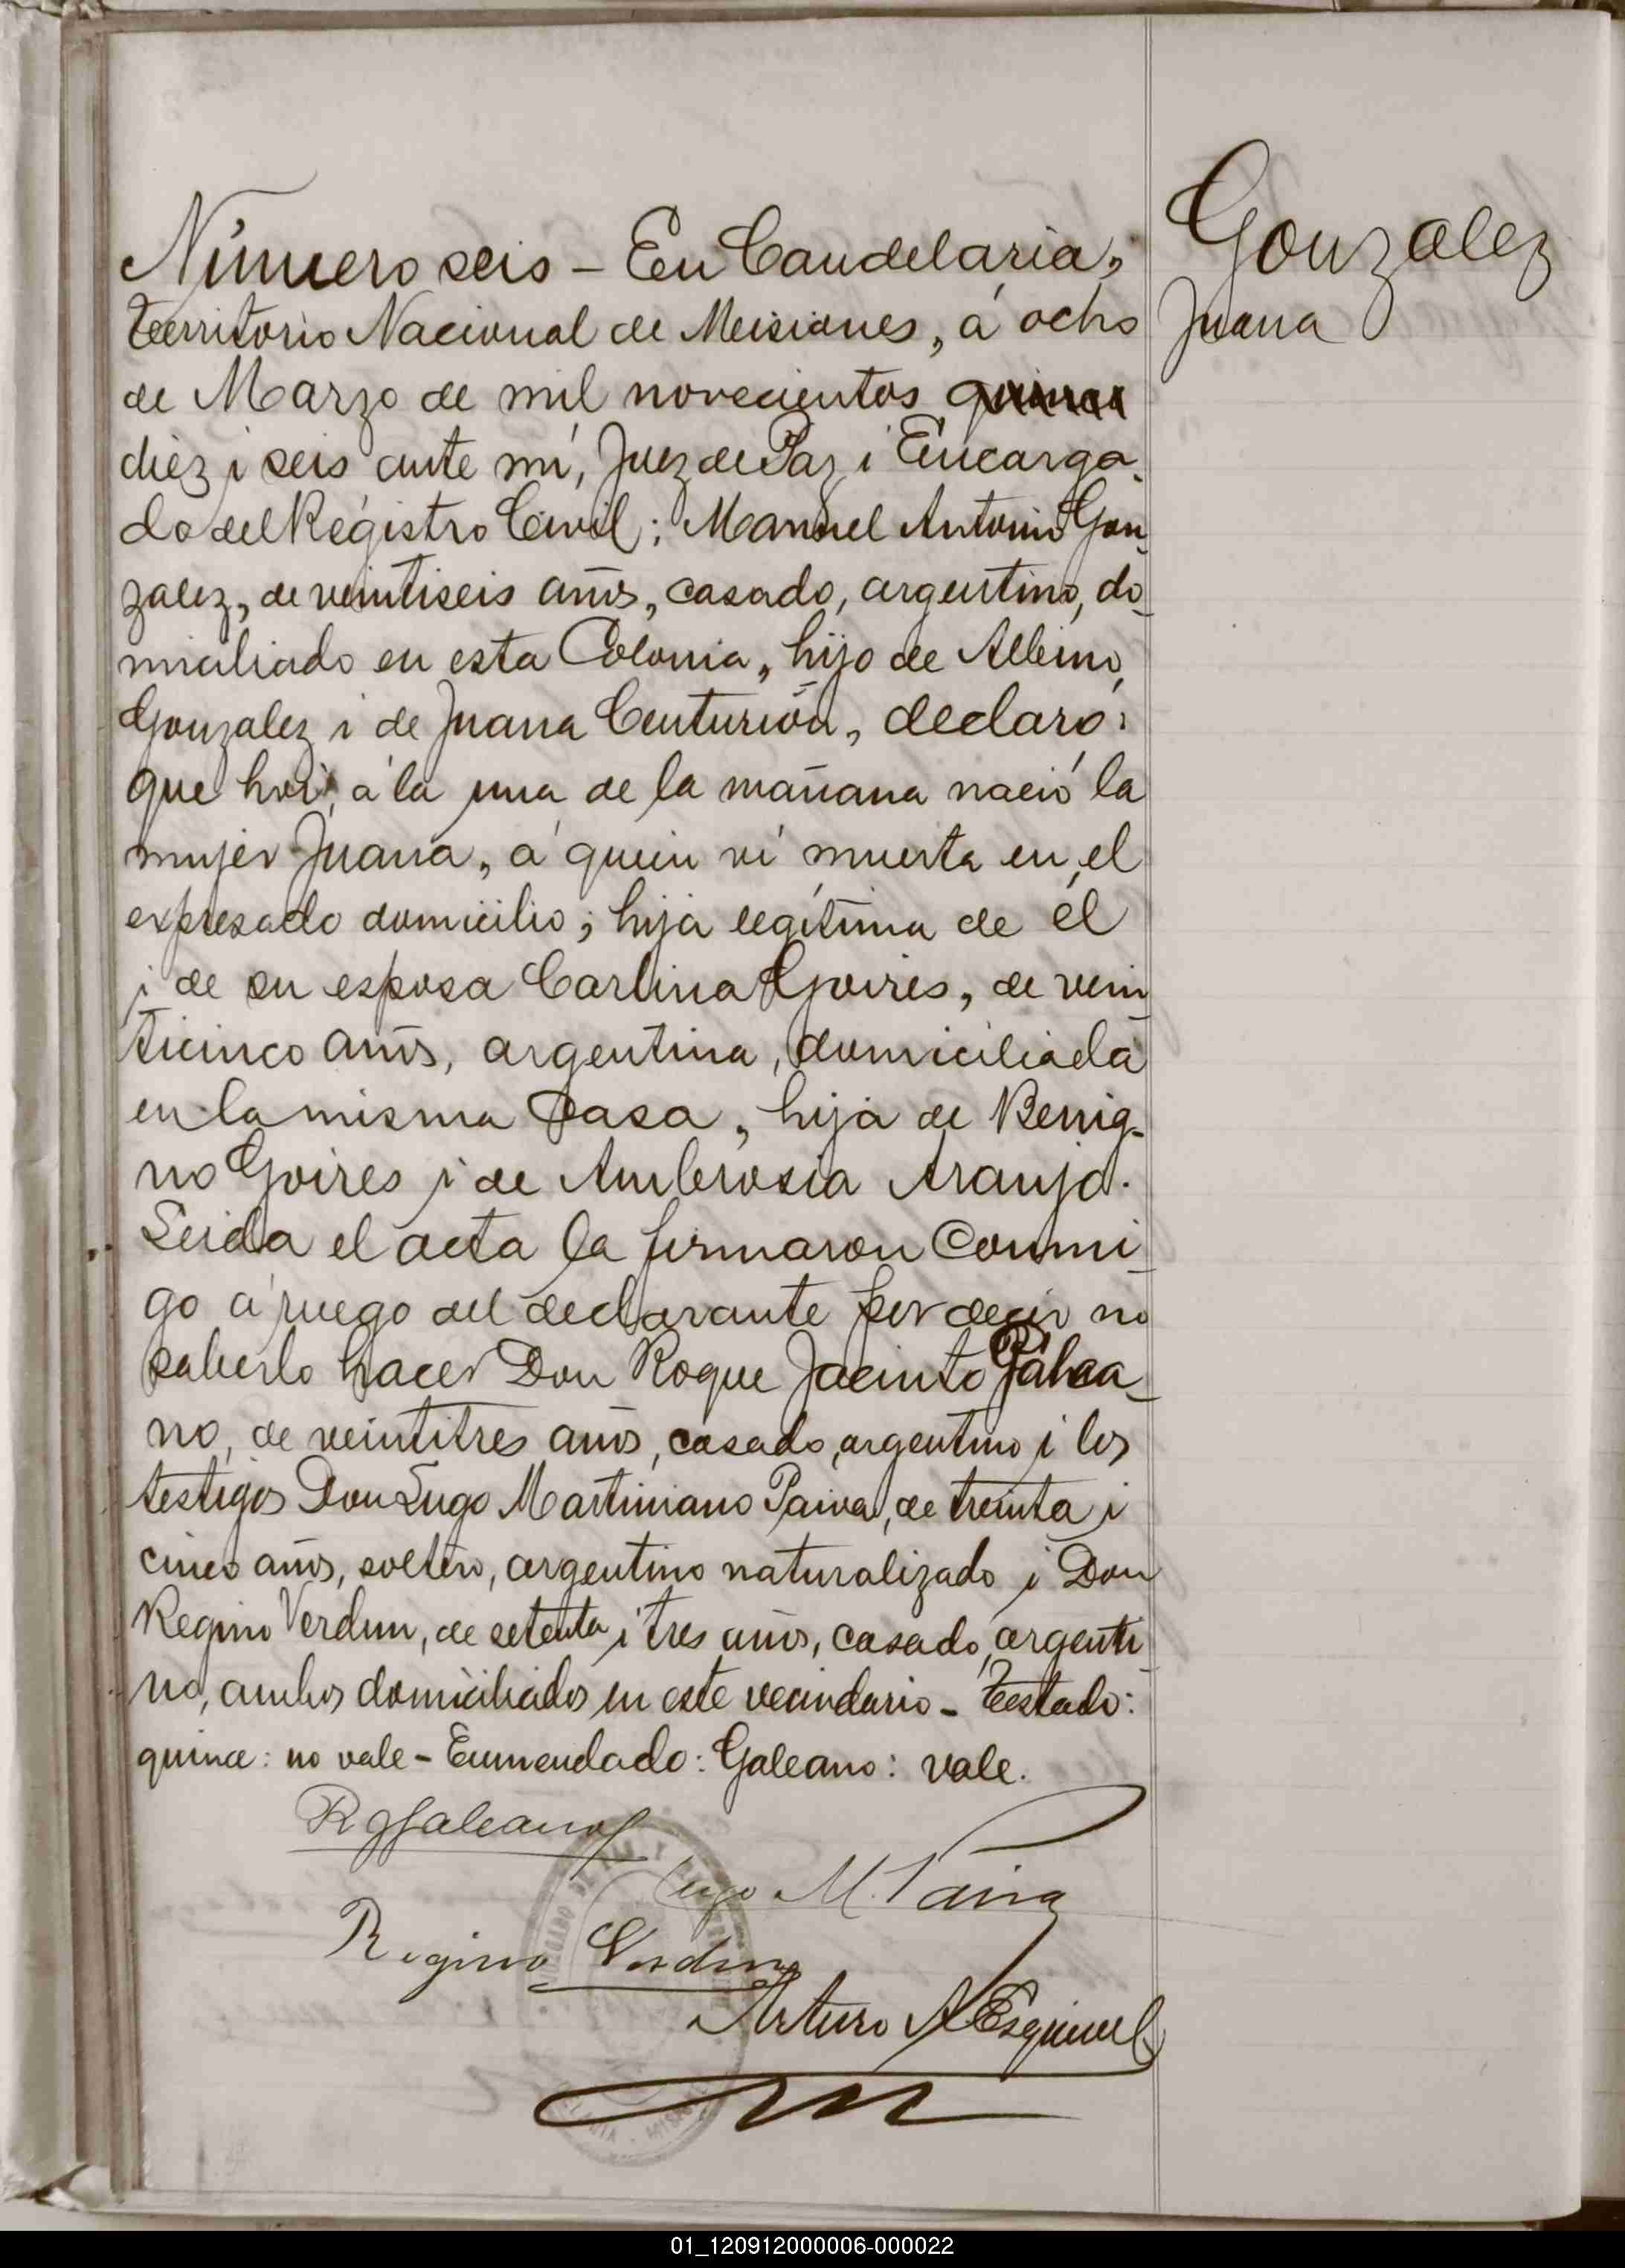 Gonzalez
Juana
Número seis – En Candelaria,
Territorio Nacional de Meisiones, á ocho
de Marzo de mil novecientos quince
diez i seis ante mí, Juez de Paz i Encarga-
do del Registro Civil; Manuel Antonio Gon-
zalez, de veintiseis años, casado, argentino, do-
miciliado en esta Colonia, hijo de Albino
Gonzalez i de Juana Centurión, declaró:
que hoi, á la una de la mañana nació la
mujer Juana, á quien ví muerta en el
expresado domicilio; hija legítima de él
i de su esposa Carlina Goires, de vein-
ticinco años, argentina, domiciliada
en la misma casa, hija de Benig-
no Goires i de Ambrosia Araujo.
Leida el acta la firmaron conmi-
go á ruego del declarante por decir no
saberlo hacer Don Roque Jacinto Galea-
no, de veintitres años, casado, argentino i los
testigos Don Lugo Martiniano Paiva, de treinta i
cinco años, soltero, argentino naturalizado i Don
Regino Verdun, de setenta i tres años, casado, argenti-
no, ambos domiciliados en este vecindario – Testado:
quince: no vale – Enmendado: Galeano: vale.
R J Galeano
Lugo M. Paiva
Regino Verdun
Arturo A Esquivel
01_120912000006-000022